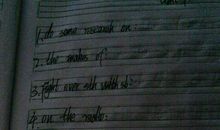 1. do some research on:
2. the makes of
3. fight over sth with sb:
4. on the radio: